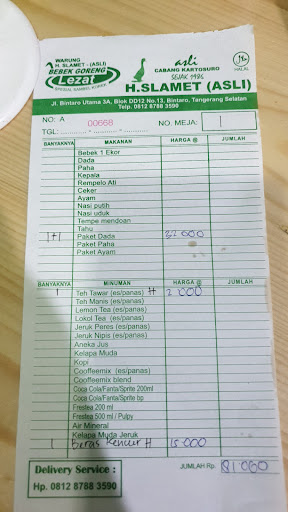 WARUNG
H. SLAMET - (ASLI)
BEBEK GORENG
Lezat
SPESIAL SAMBEL KOREK
asli
CABANG KARTOSURO
SEJAK 1986
HALAL
H.SLAMET (ASLI)
Jl. Bintaro Utama 3A, Blok DD12 No.13, Bintaro, Tangerang Selatan
Telp. 0812 8788 3590
NO: A 00668 NO. MEJA: 1
TGL: ............ - ............ - ............
BANYAKNYA MAKANAN HARGA @ JUMLAH
Bebek 1 Ekor
Dada
Paha
Kepala
Rempelo Ati
Ceker
Ayam
Nasi putih
Nasi uduk
Tempe mendoan
Tahu
1+1 Paket Dada 32 000
Paket Paha
Paket Ayam
BANYAKNYA MINUMAN HARGA @ JUMLAH
1 Teh Tawar (es/panas) H 2 000
Teh Manis (es/panas)
Lemon Tea (es/panas)
Lokol Tea (es/panas)
Jeruk Peres (es/panas)
Jeruk Nipis (es/panas)
Aneka Jus
Kelapa Muda
Kopi
Cooffeemix (es/panas)
Cooffeemix blend
Coca Cola/Fanta/Sprite 200ml
Coca Cola/Fanta/Sprite bp
Frestea 200 ml
Frestea 500 ml / Pulpy
Air Mineral
Kelapa Muda Jeruk
1 Beras Kencur H 15 000
Delivery Service :
Hp. 0812 8788 3590
JUMLAH Rp. 81 000